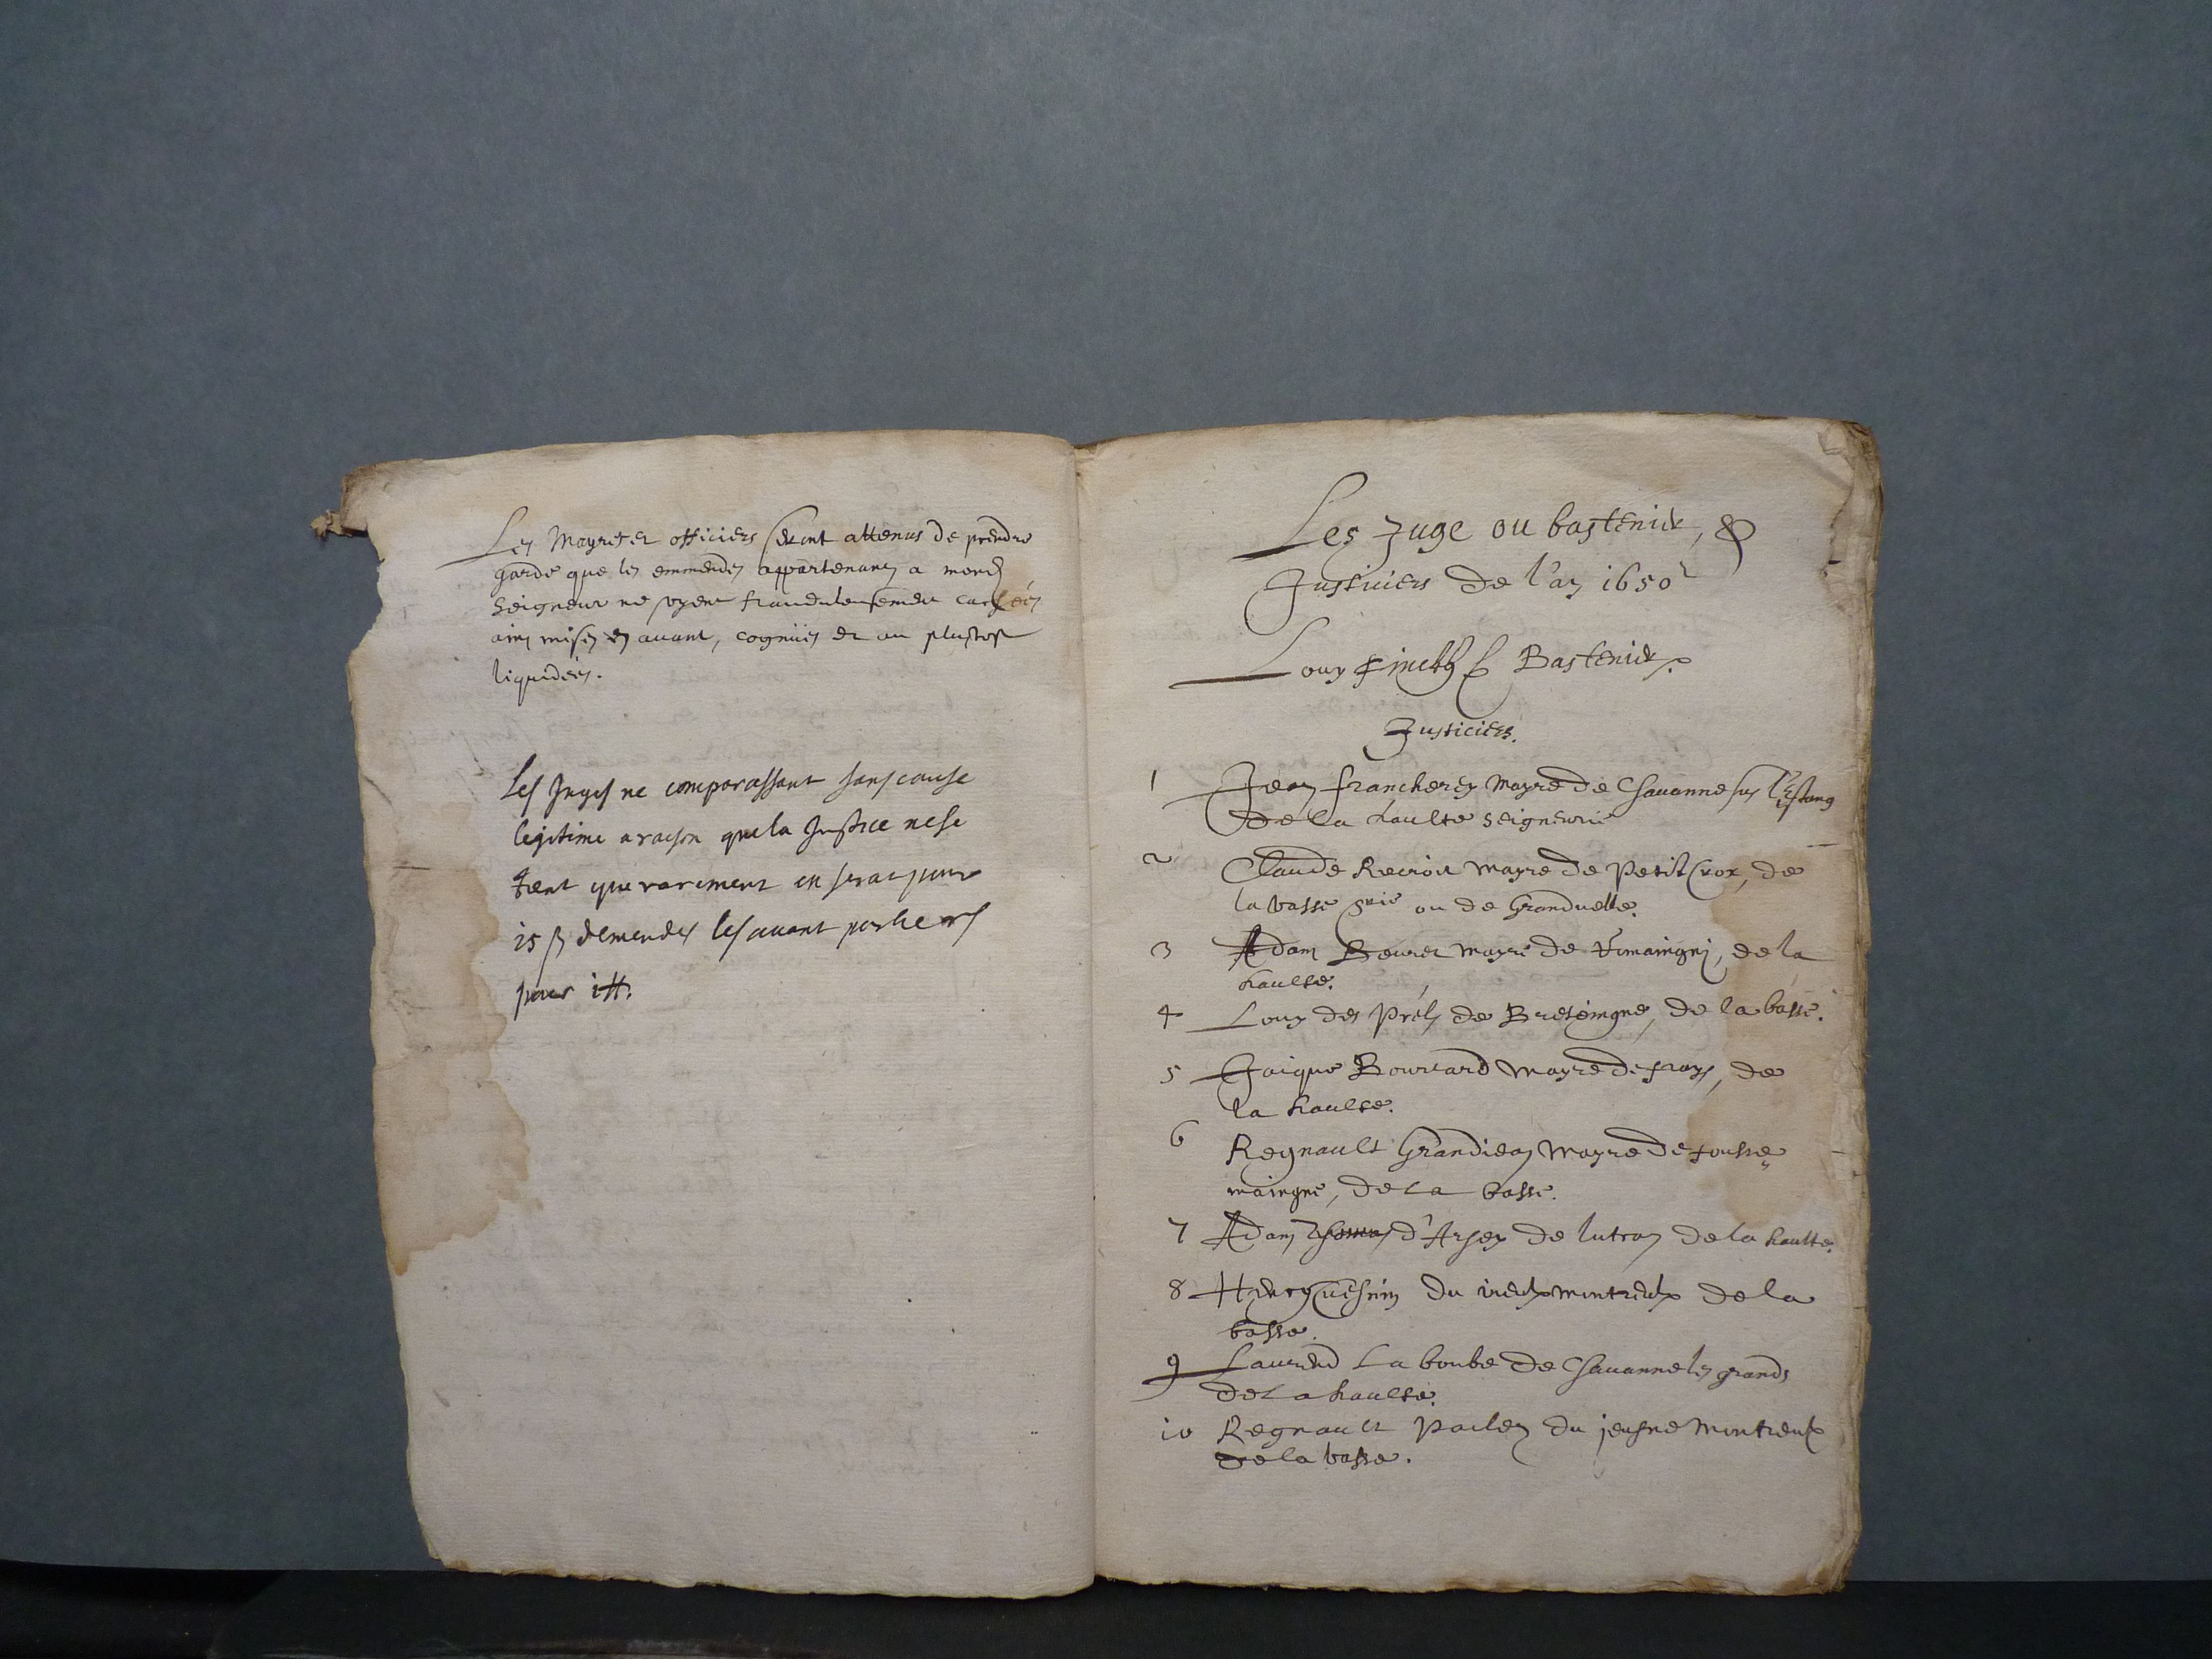 Les Mayres et officiers seront attenus de prendre
garde que les emmendes appartenans a mond
Seigneur ne soyent frauduleusement cachées
ains mises en avant, cognües et au plustost
liquidées.
Les Juges ne comparassant sans cause
legitime a raison que la Justice ne se
tient que rarement en serat pour
15 ß demendes les avant parliers
pour 1 tt.
Les Juge ou bastenier, &
Justiciers de l'an 1650
Louy Bastenier.
Justiciers.
1 Jean francherey Mayre de Chavanne sur l'Estang
de la haulte Seigneurie
2 Claude Recroit mayre de Petit Croix, de
la basse Srie ou de Granduelle.
3 Adam Beuret mayre de Romaingny, de la
haulte.
4 Louy des Prels de Breteingne, de la basse.
5 Jaique Bourcard mayre de frays, de
la haulte.
6 Regnault Grandiean Mayre de fousse
maingne, de la basse.
7 Adam d'Argey de lutran de la haulte.
8 Henry du vieulx montreulx de la
basse.
9 Laurend La boube de Chavanne les grands
de la haulte.
10 Regnault Pailley du jeusne Montreulx
de la basse.